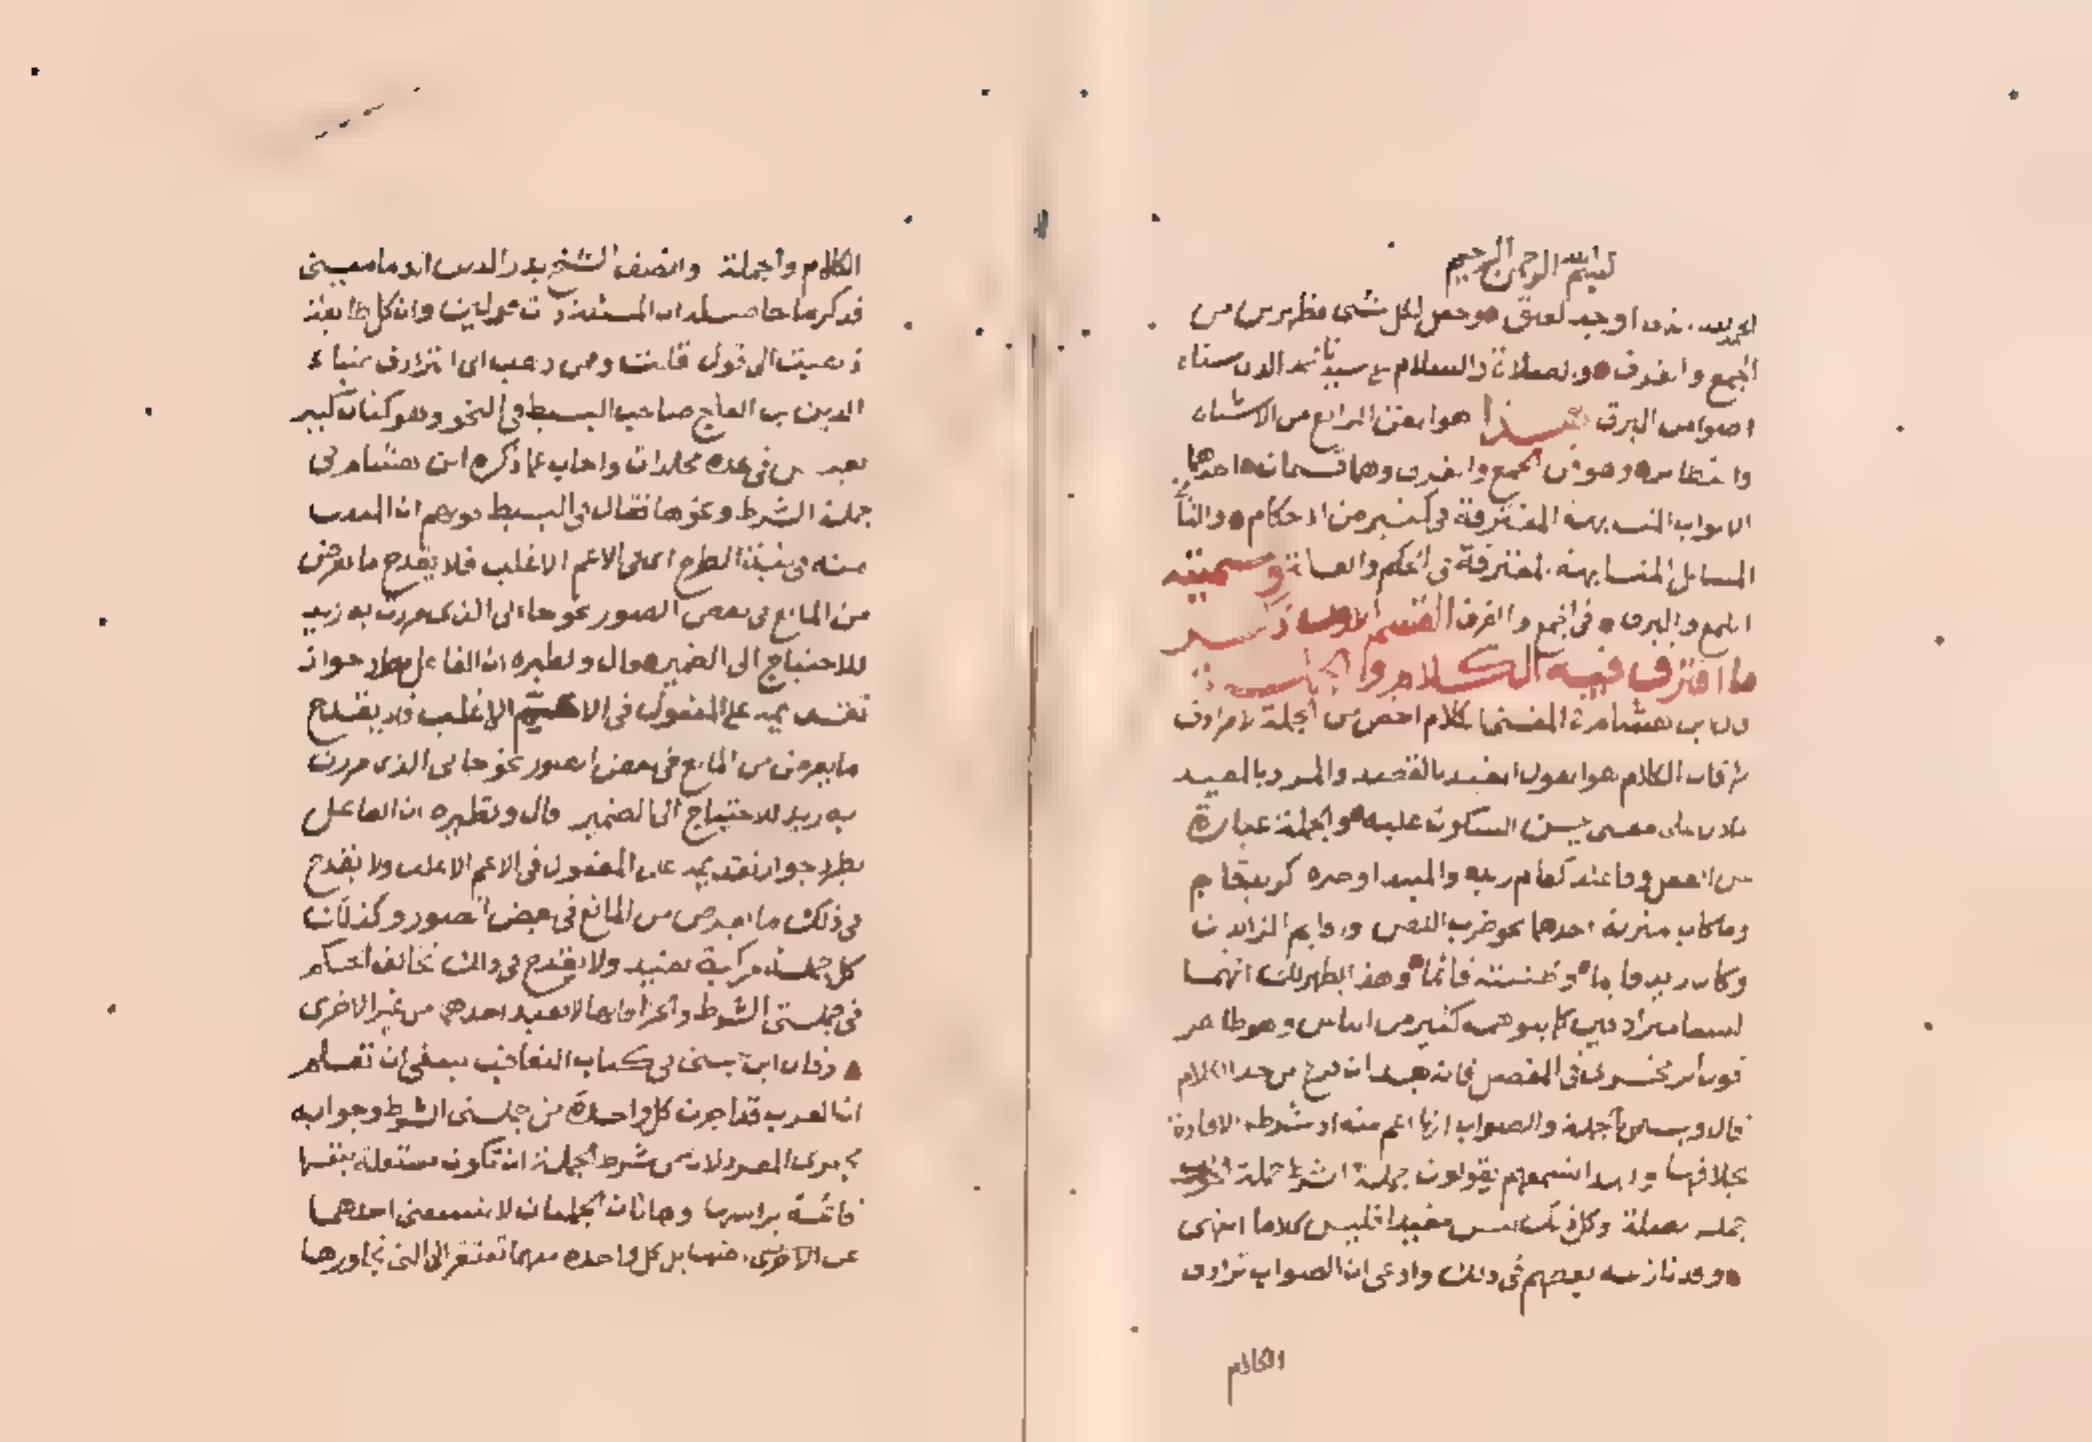 بسم الله الرحمن الرحيم
الجمع والفرق والصلاة والسلام على سيدنا محمد الذى سناه
اضوا من البرق هذا هو الفن الرابع من الاشباه
والنظائر وهو فن الجمع والفرق وهما قسمان احدهما
الابواب المتشابهة المفترقة فى كثير من الاحكام والثانى
المسائل المتشابهة المفترقة فى الحكم والعلة وسميته
اللمع والبرق فى الجمع والفرق القسم الاول ذكر
ما افترق فيه الكلام والجملة
قال ابن هشام فى المغنى الكلام اخص من الجملة لا مرادف
لها فان الكلام هو القول المفيد بالقصد والمراد بالمفيد
ما دل على معنى يحسن السكوت عليه والجملة عبارة
عن الفعل وفاعله كقام زيد والمبتدا وخبره كزيد قايم
وما كان بمنزلة احدهما نحو ضرب اللص واقايم الزيدان
وكان زيد قايما وظننته قائما وهذا يظهر لك انهما
ليسا مترادفين كما يتوهمه كثير من الناس وهو ظاهر
قول الزمخشرى فى المفصل فانه بعد ان فرغ من حد الكلام
قال ويسمى الجملة والصواب انها اعم منه اذ شرطه الافادة
بخلافها ولهذا تسمعهم يقولون جملة الشرط جملة الجواب
جملة الصلة وكل ذلك ليس مفيدا فليس كلاما انتهى
وقد نازعه بعضهم فى ذلك وادعى ان الصواب ترادف
الكلام
الكلام والجملة
فذكر ما حاصله ان المسئلة ذات قولين وان كل طايفة
ذهبت الى قول
الدين بن العلج صاحب البسيط فى النحو وهو كتاب كبير
نفيس فى عدة مجلدات واجاب عما ذكره ابن هشام فى
جملة الشرط ونحوها فقال فى البسيط
الاعم الاغلب فلا يقدح ما يعرض
من المانع فى بعض الصور نحو جاءنى الذى مررت به زيد
للاحتياج الى الضمير قال ونظيره ان الفاعل يطرد جواز
تقديمه على المفعول فى الاعم الاغلب ولا يقدح
ما يعرض من المانع فى بعض الصور نحو جاءنى الذى مررت
به زيد للاحتياج الى الضمير قال ونظيره ان الفاعل
يطرد جواز تقديمه على المفعول فى الاعم الاغلب ولا يقدح
فى ذلك ما يعرض من المانع فى بعض الصور وكذلك
كل جملة مركبة تفيد ولا يقدح فى ذلك تخالف الحكم
فى جملتى الشرط والجزا فانها لا تفيد احدهما من غير الاخرى
وقال ابن جنى فى كتاب التعاقب ينبغى ان تعلم
ان العرب قد اجرت كل واحدة من جملتى الشرط وجوابه
مجرى المفرد لان من شرط الجملة ان تكون مستقلة بنفسها
قائمة براسها وهاتان الجملتان لا تستغنى احداهما
عن الاخرى بل كل واحدة منهما تفتقر الى التى تجاورها